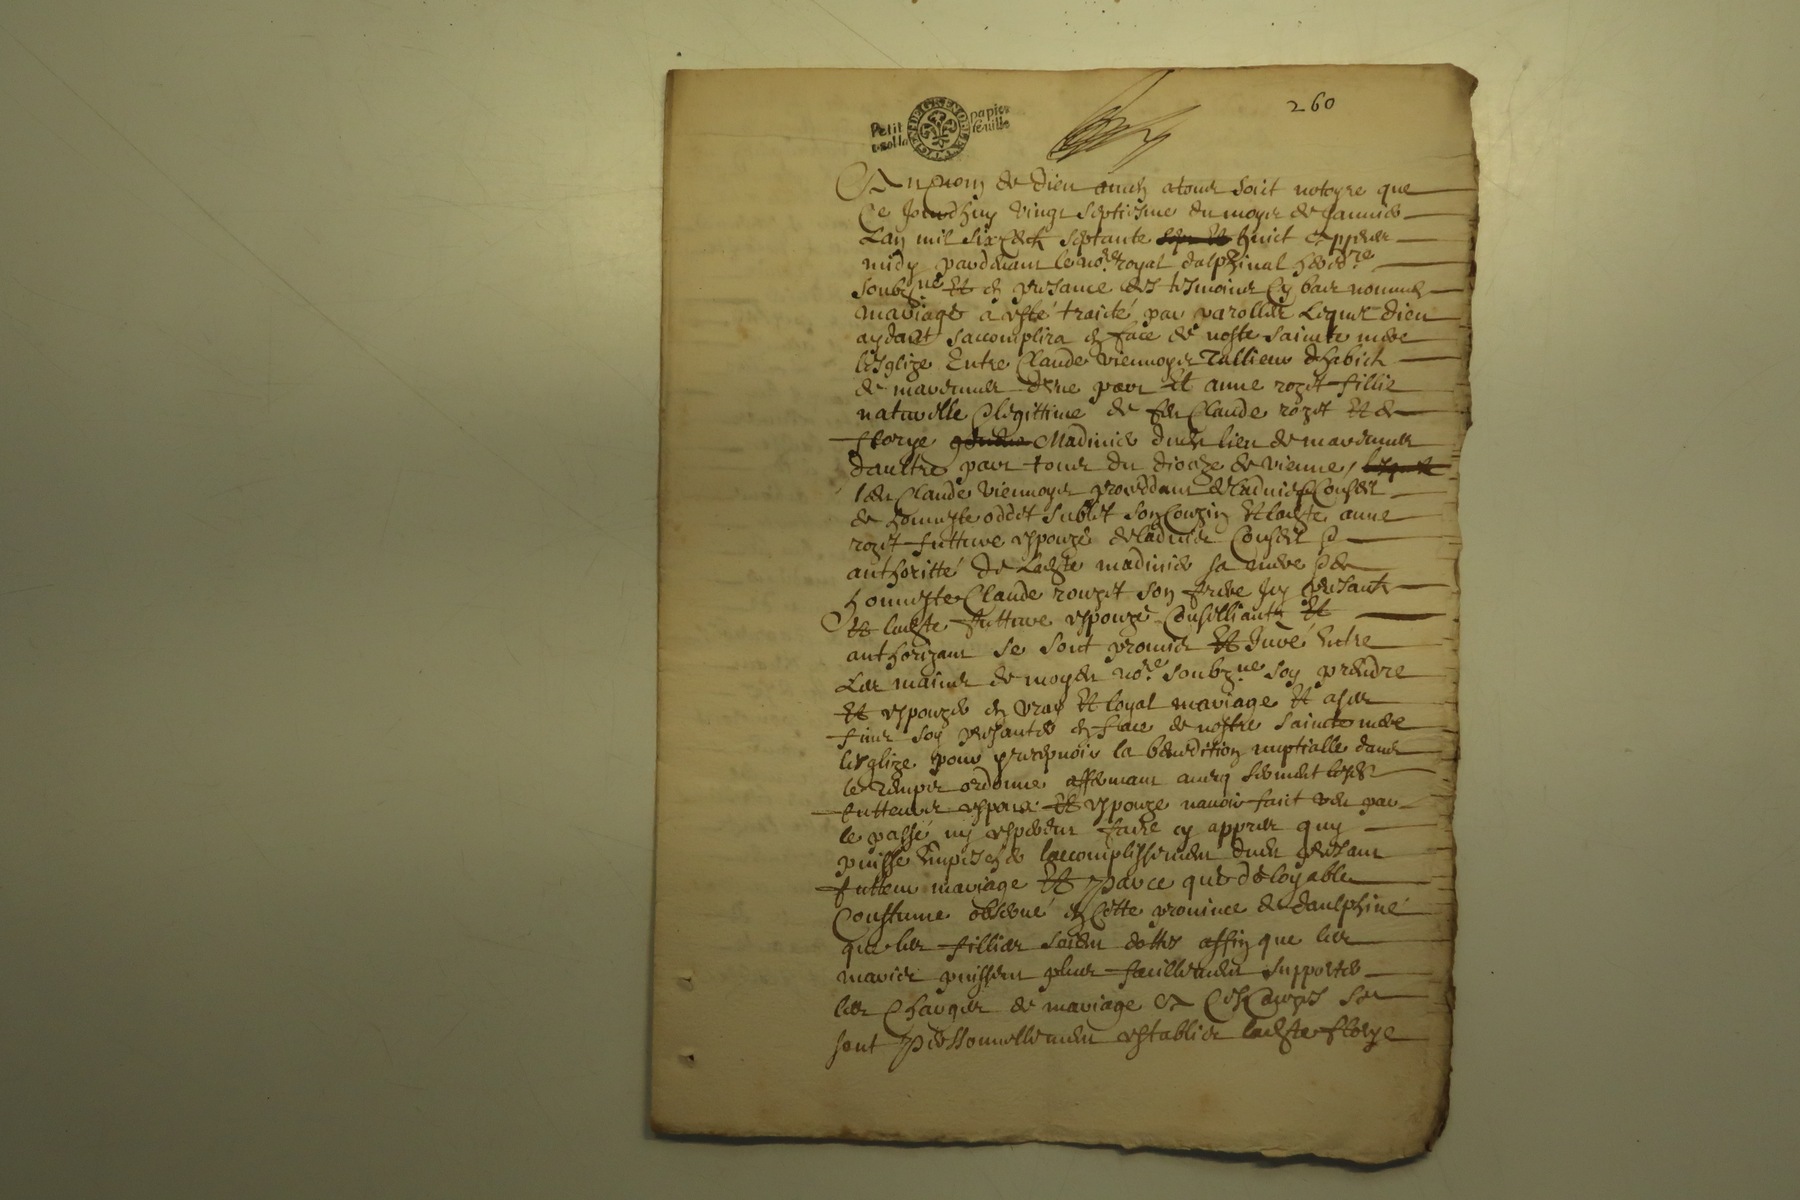 260
Petit papier
feuille
GRENOBLE
Au nom de dieu amen a tous soict notoyre que
Ce jourdhuy vingt septiesme du moys de janvier
Lan mil six cent septante huict appres
midy pardevant le no.re royal dalphinal hered.re
soubz.né et en presance des tesmoins cy bas nommes
mariage a esté traicté par parolles lequel dieu
aydant saccomplira en face de noste saincte mere
lesglize Entre Claude viennoys Tallieur dhabictz
de dune part et anne rozet fillie
naturelle & legittime de feu Claude rozet et de
floryе Madinier dudit lieu de
daultre part tous du dioceze de vienne
led.t Claude viennoys proceddant de ladvis & Conseil
de honneste oddet sublet son Couzin et ladite anne
rozet future espouze de ladvis Conseil &
authoritté de Ladite madinier sa mere & de
honneste Claude rouzet son frere Icy presantz
et ladite future espouze Conseilliantz et
authorizant se sont promis et Juré Entre
Les mains de moydit no.re soubz.né soy prendre
et espouzer en vray et loyal mariage et a ses
fins soy presanter en face de nostre saincte mere
lesglize pour percepvoir la benedition nuptialle dans
le temps ordonne affermant avecq serment lesdits
futteurs espoux et espouze navoir faict rien par
le passé ny esperent faire cy appres quy
puisse Empescher laccomplissement dudit presant
futteur mariage et parce que de loyable
Coustume observé en Cette province de daulphiné
que les fillies soient dottes affin que les
maris puissent plus facillement supporter
les Charges de mariage
sont personnellement establies ladite florye